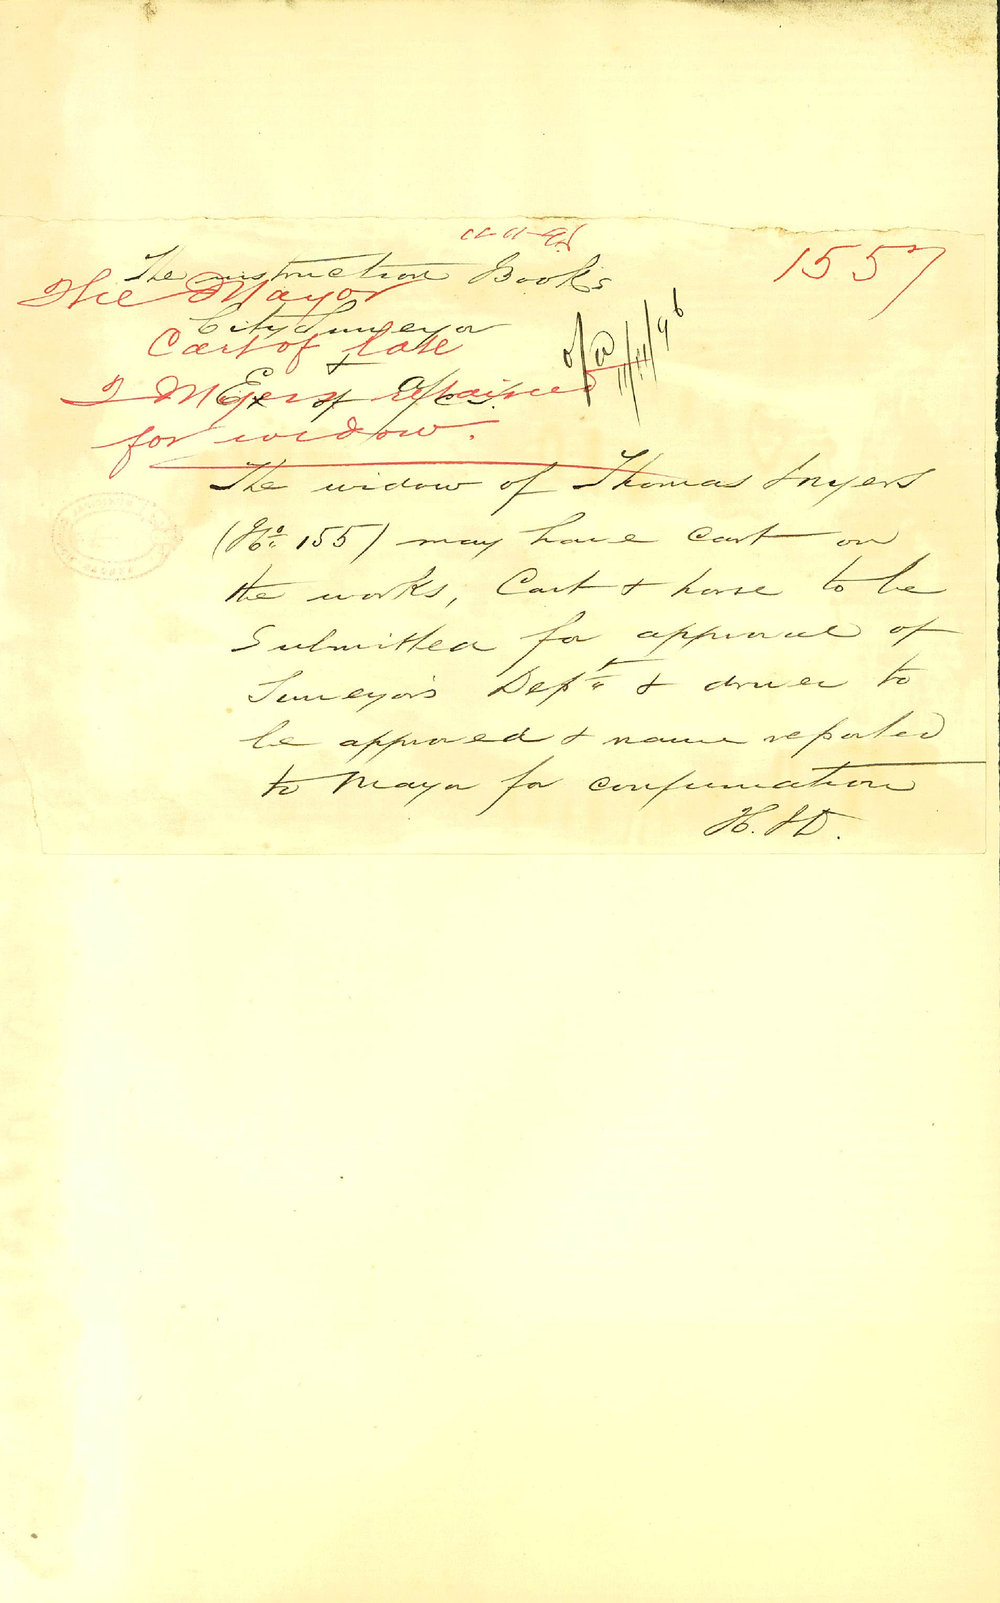 11-11-96
1557
The instruction Books
The Mayor
City Surveyor
Cart of late
&
T Myers retained
Ex of A/cs.
for widow.
11/11/96
The widow of Thomas Myers
(No. 155) may have cart on
the works, Cart & horse to be
Submitted for approval of
Surveyor's Dept & driver to
be approved & name reported
to Mayor for confirmation